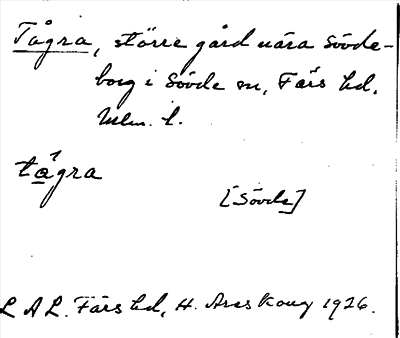 Tågra, större gård nära Sövde-
borg i Sövde sn, Färs hd,
Mlm. l.
tågra
[Sövde]
L A L. Färs hd, H. Areskoug 1926.